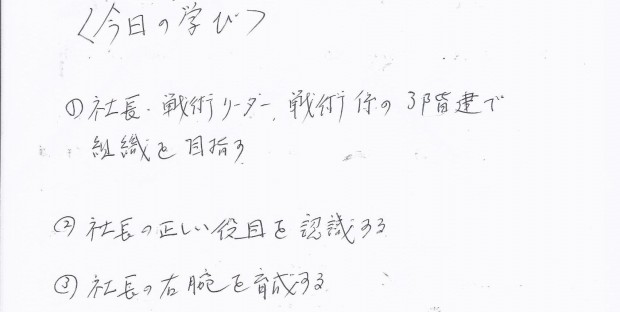 <今日の学び>
① 社長・戦術リーダー、戦術係の3階建で
組織を目指す
② 社長の正しい役目を認識する
③ 社長の右腕を育成する